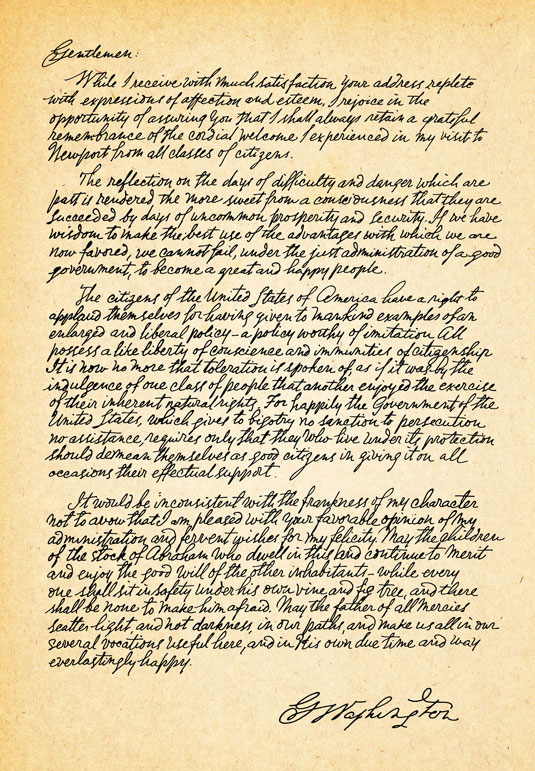 Gentlemen:
While I receive with much satisfaction your address replete
with expressions of affection and esteem, I rejoice in the
opportunity of assuring you that I shall always retain a grateful
remembrance of the cordial welcome I experienced in my visit to
Newport from all classes of citizens.
The reflection on the days of difficulty and danger which are
past is rendered the more sweet from a consciousness that they are
succeeded by days of uncommon prosperity and security. If we have
wisdom to make the best use of the advantages with which we are
now favored, we cannot fail, under the just administration of a good
government, to become a great and happy people.
The citizens of the United States of America have a right to
applaud themselves for having given to mankind examples of an
enlarged and liberal policy—a policy worthy of imitation. All
possess a like liberty of conscience and immunities of citizenship
It is now no more that toleration is spoken of as if it was by the
indulgence of one class of people that another enjoyed the exercise
of their inherent natural rights. For happily the Government of the
United States, which gives to bigotry no sanction to persecution
no assistance, requires only that they who live under its protection
should demean themselves as good citizens in giving it on all
occasions their effectual support.
It would be inconsistent with the frankness of my character
not to avow that I am pleased with your favorable opinion of my
administration and fervent wishes for my felicity. May the children
of the stock of Abraham who dwell in this land continue to merit
and enjoy the good will of the other inhabitants—while every
one shall sit in safety under his own vine and fig tree, and there
shall be none to make him afraid. May the father of all mercies
scatter light and not darkness, in our paths, and make us all in our
several vocations useful here, and in His own due time and way
everlastingly happy.
G Washington